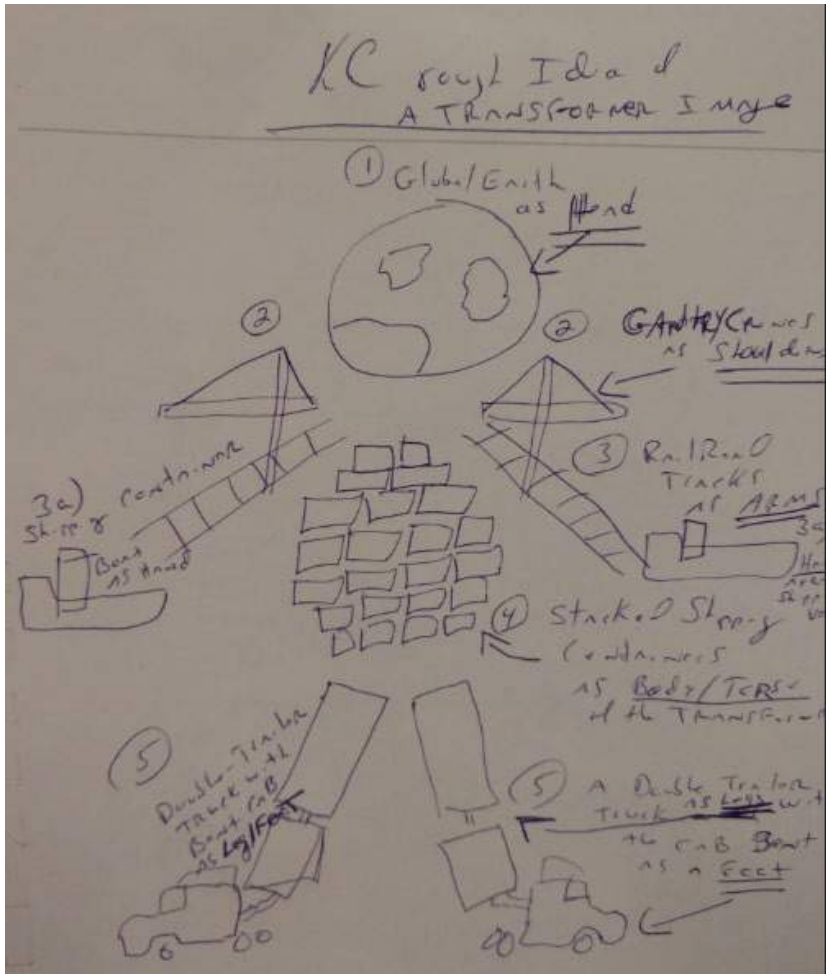 KC rough Idea of
A TRANSFORMER Image
① Globe/Earth
as Head
②
②
GANTRY Cranes
as Shoulders
3a)
Shipping Container
Boat
as Hand
③ RailRoad
Tracks
as ARMS
3a)
④ Stacked Shipping
Containers
as Body/Torso
of the TRANSFormer
⑤
Double-Trailer
Truck with
Bent CAB
as Leg/Feet
⑤ A Double Trailer
Truck as Legs with
the CAB Bent
as a Feet